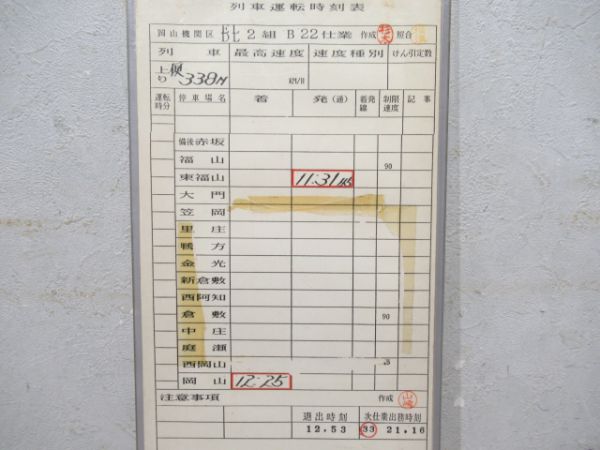 列車運転時刻表
岡山機関区 EL BL 2組 B 22仕業 作成 杉本 照合
列車 最高速度 速度種別 けん引定数
上り 338M KM/H
運転時分 停車場名 着 発(通) 着発線 制限速度 記事
備後赤坂
福山 90
東福山 11:31 45
大門
笠岡
里庄
鴨方
金光
新倉敷
西阿知
倉敷 90
中庄
庭瀬
西岡山
岡山 12:25
注意事項 作成 山崎
退出時刻 次仕業出務時刻
12.53 33 21.16